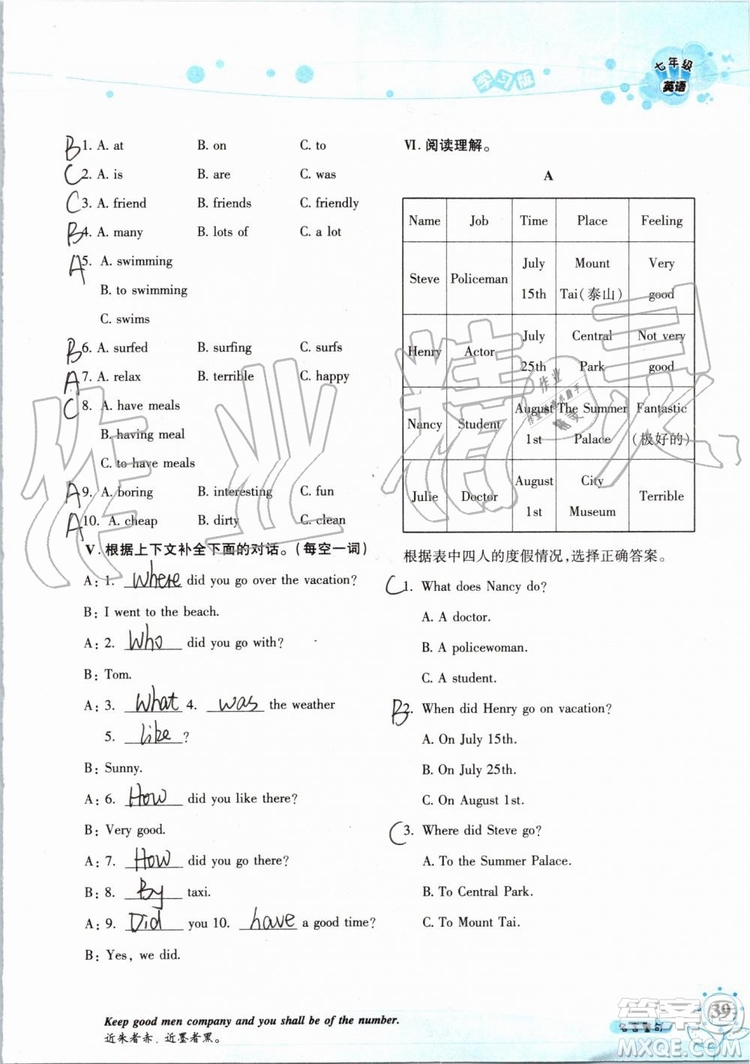 学习版
七年级
英语
B 1. A. at B. on C. to
C 2. A. is B. are C. was
C 3. A. friend B. friends C. friendly
B 4. A. many B. lots of C. a lot
A 5. A. swimming
B. to swimming
C. swims
B 6. A. surfed B. surfing C. surfs
A 7. A. relax B. terrible C. happy
C 8. A. have meals
B. having meal
C. to have meals
A 9. A. boring B. interesting C. fun
A 10. A. cheap B. dirty C. clean
Ⅴ. 根据上下文补全下面的对话。(每空一词)
A: 1. Where did you go over the vacation?
B: I went to the beach.
A: 2. Who did you go with?
B: Tom.
A: 3. What 4. was the weather
5. like ?
B: Sunny.
A: 6. How did you like there?
B: Very good.
A: 7. How did you go there?
B: 8. By taxi.
A: 9. Did you 10. have a good time?
B: Yes, we did.
Ⅵ. 阅读理解。
A
Name Job Time Place Feeling
Steve Policeman July 15th Mount Tai(泰山) Very good
Henry Actor July 25th Central Park Not very good
Nancy Student August 1st The Summer Palace Fantastic (极好的)
Julie Doctor August 1st City Museum Terrible
根据表中四人的度假情况,选择正确答案。
C 1. What does Nancy do?
A. A doctor.
B. A policewoman.
C. A student.
B 2. When did Henry go on vacation?
A. On July 15th.
B. On July 25th.
C. On August 1st.
C 3. Where did Steve go?
A. To the Summer Palace.
B. To Central Park.
C. To Mount Tai.
Keep good men company and you shall be of the number.
近朱者赤,近墨者黑。
39
作业精灵
答案圈
MXQE.COM